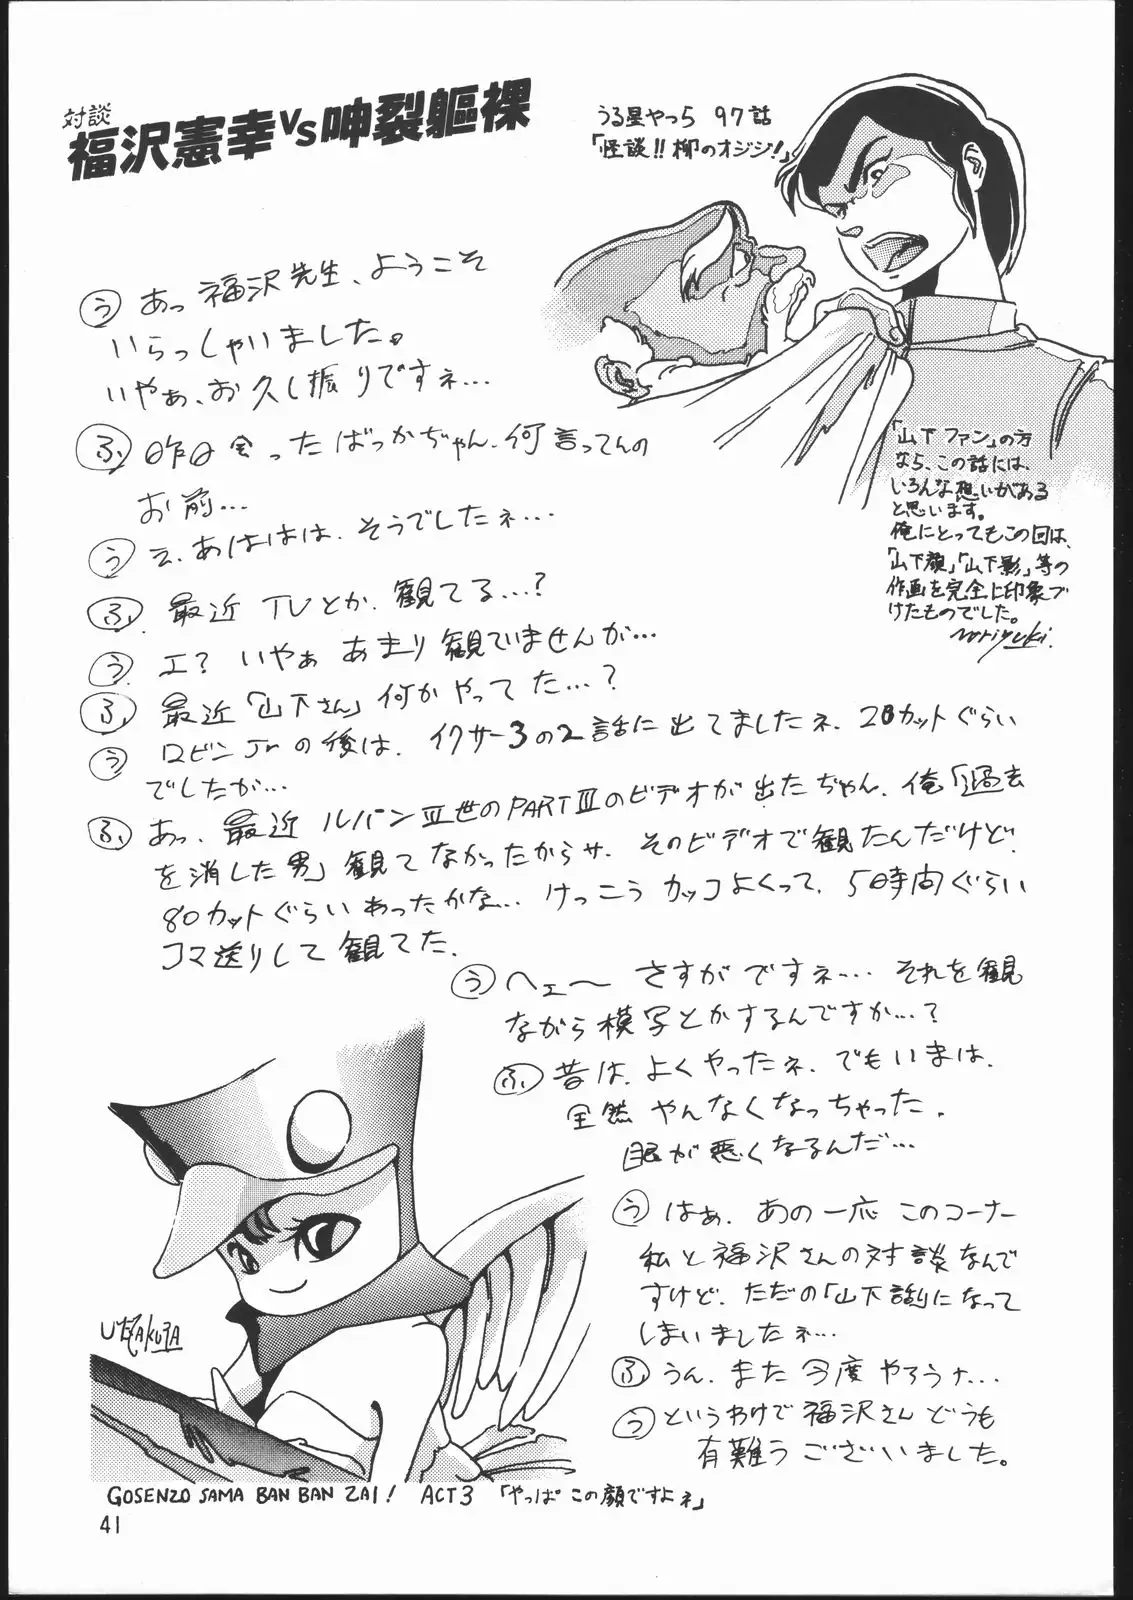 対談
福沢憲幸VS呻裂軀裸
うる星やつら 97話
「怪談!!柳のオジジ!」
う あっ福沢先生、ようこそ
いらっしゃいました。
いやぁ、お久し振りですネ…
ふ 昨日会ったばっかぢゃん、何言ってんの
お前…
う え、あははは、そうでしたネ…
ふ 最近TVとか、観てる…?
う エ? いやぁ あまり観ていませんが…
ふ 最近「山下さん」何かやってた…?
う ロビンJrの後は、イクサー3の2話に出てましたネ、20カットぐらい
でしたが…
ふ あっ、最近 ルパンⅢ世のPARTⅢのビデオが出たぢゃん、俺「過去
を消した男」観てなかったからサ、そのビデオで観たんだけど、
80カットぐらいあったかな… けっこうカッコよくって、5時間ぐらい
コマ送りして観てた。
「山下ファン」の方
なら、この話には、
いろんな想いがある
と思います。
俺にとってもこの回は、
「山下顔」「山下影」等の
作画を完全に印象づ
けたものでした。
Noriyuki.
う ヘェ〜 さすがですネ… それを観
ながら模写とかするんですか…?
ふ 昔は、よくやったネ、でもいまは、
全然やんなくなっちゃった。
眼が悪くなるんだ…
う はぁ、あの一応このコーナー
私と福沢さんの対談なんで
すけど、ただの「山下談」になって
しまいましたネ…
ふ うん、また今度やろうナ…
う というわけで福沢さんどうも
有難うございました。
GOSENZO SAMA BAN BAN ZAI! ACT3 「やっぱこの顔ですよネ」
41